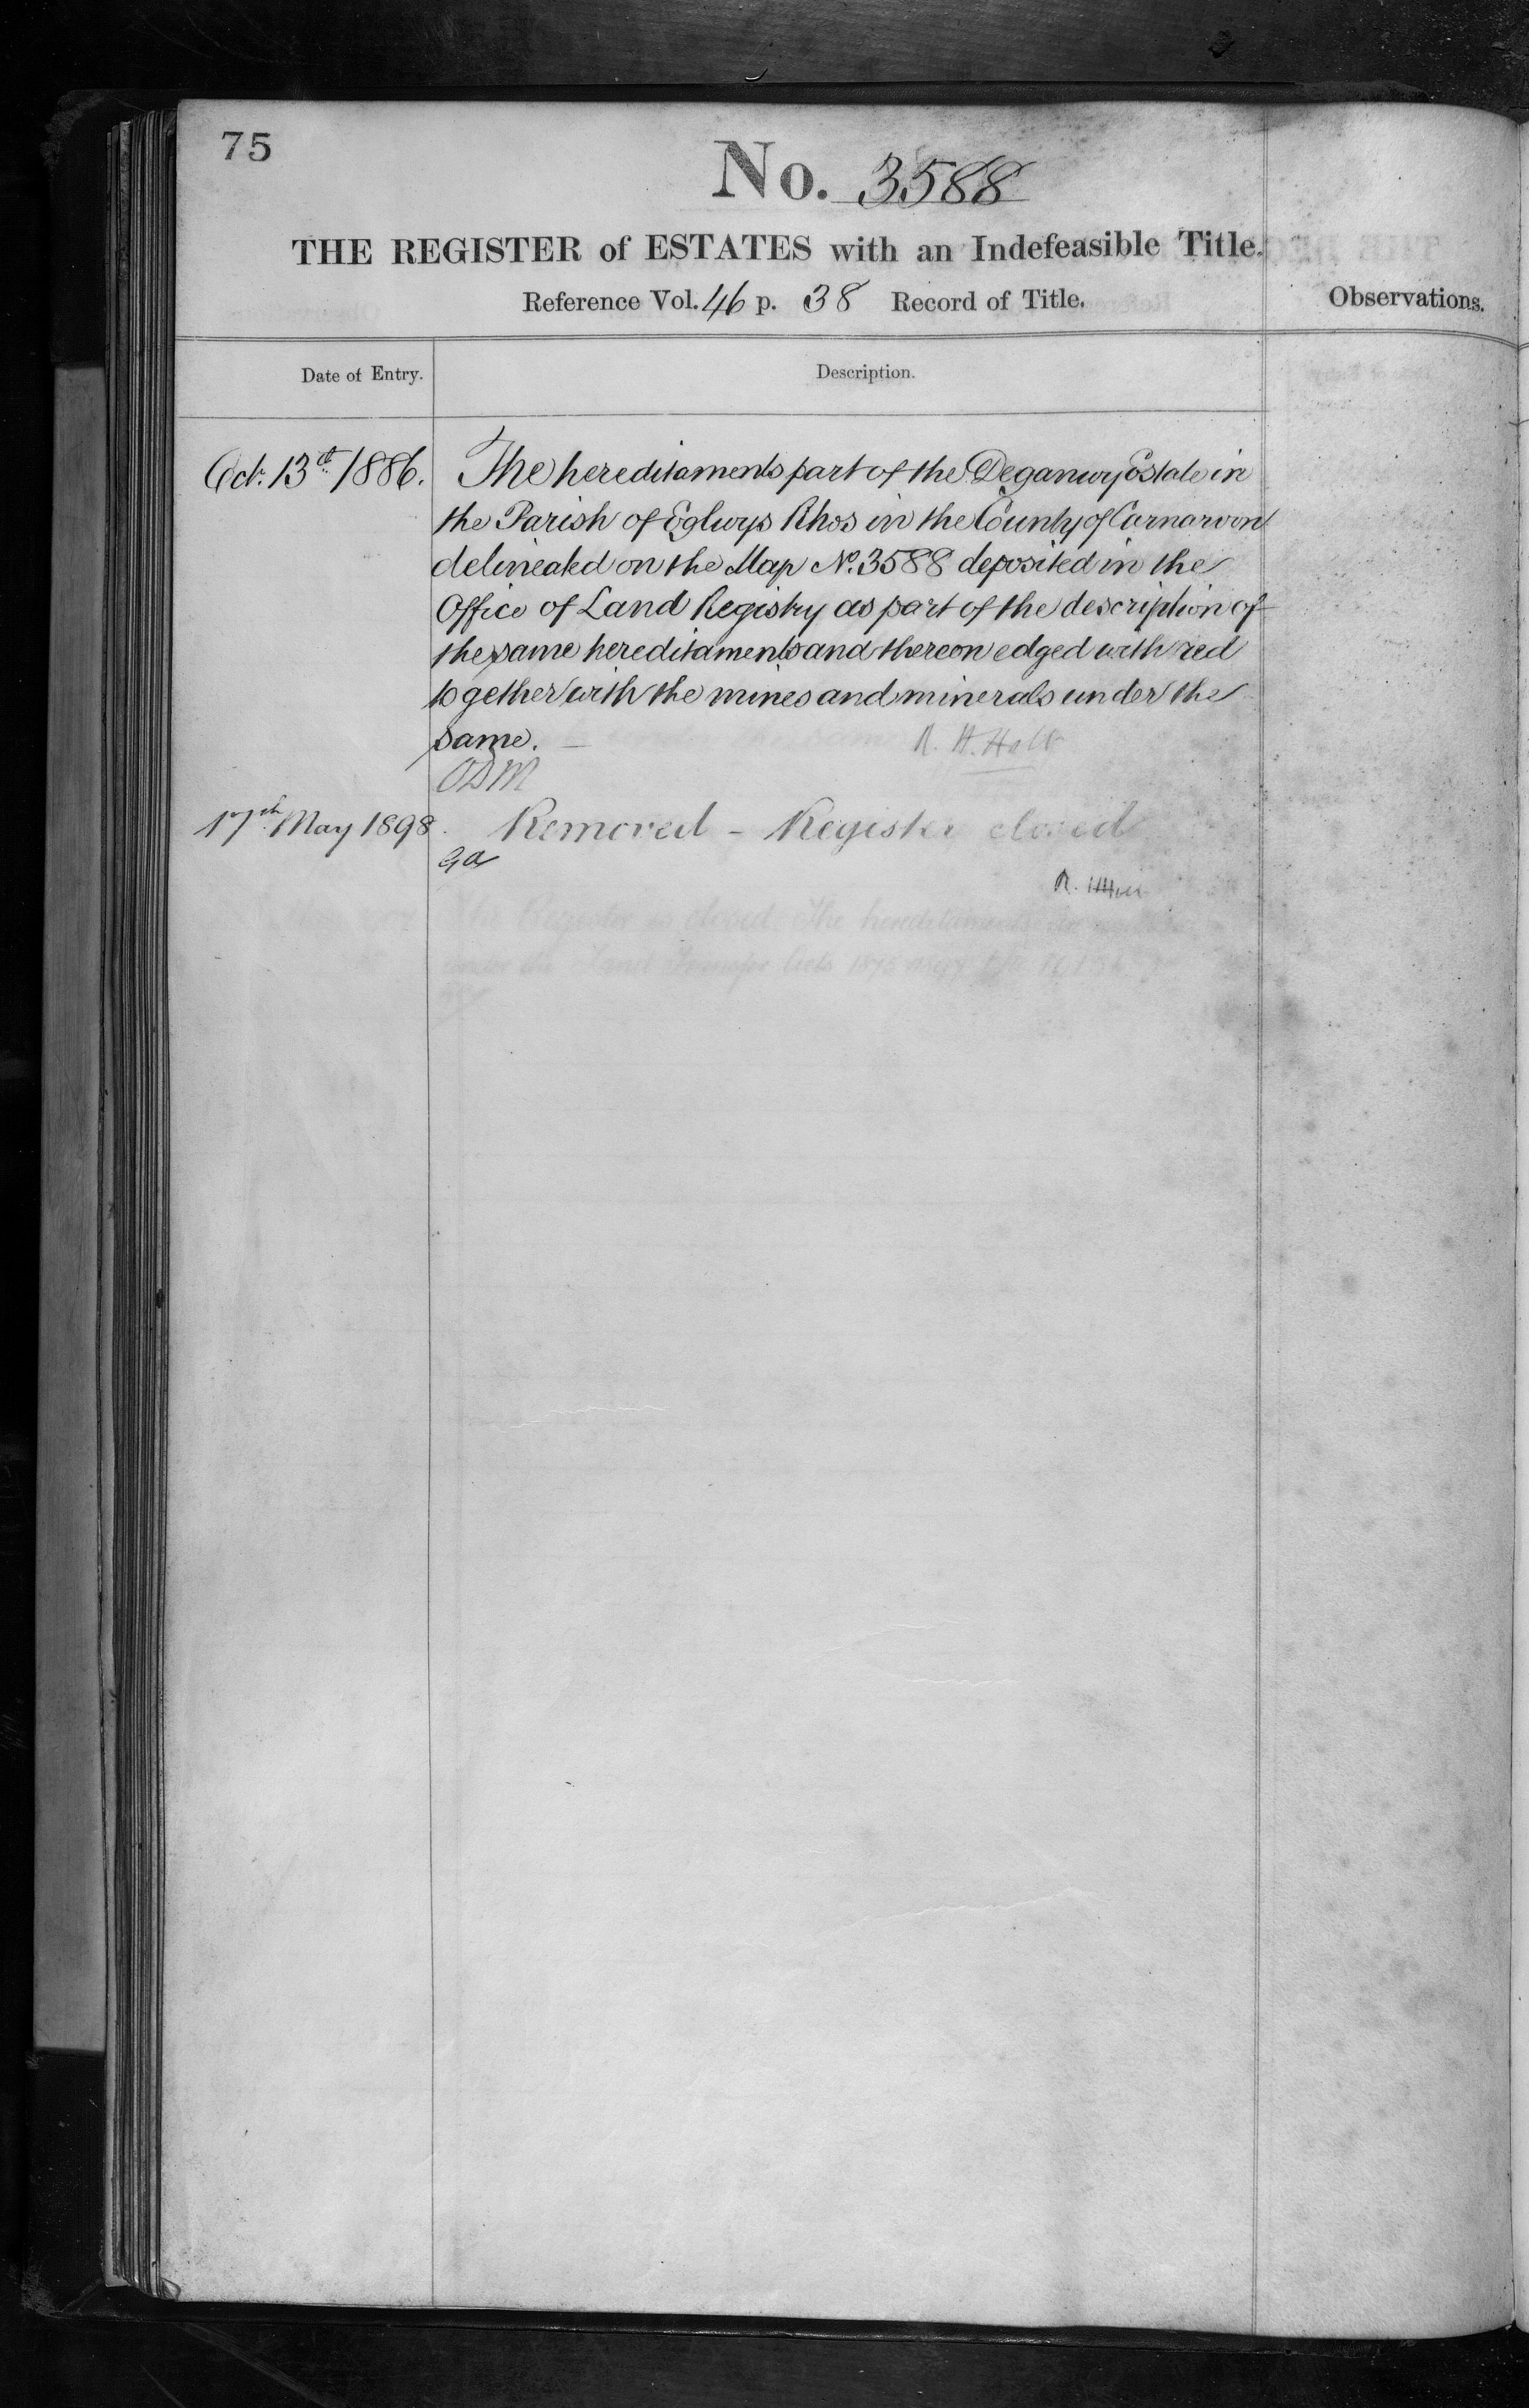 75
No. 3588
THE REGISTER of ESTATES with an Indefeasible Title.
Reference Vol. 46 p. 38 Record of Title.
Observations.
Date of Entry.
Description.
Oct. 13th 1886. The hereditaments part of the Deganwy Estate in
the Parish of Eglwys Rhos in the County of Carnarvon
delineated on the Map No. 3588 deposited in the
Office of Land Registry as part of the description of
the same hereditaments and thereon edged with red
together with the mines and minerals under the
same. R. H. Holt
17th May 1898. Removed - Register closed